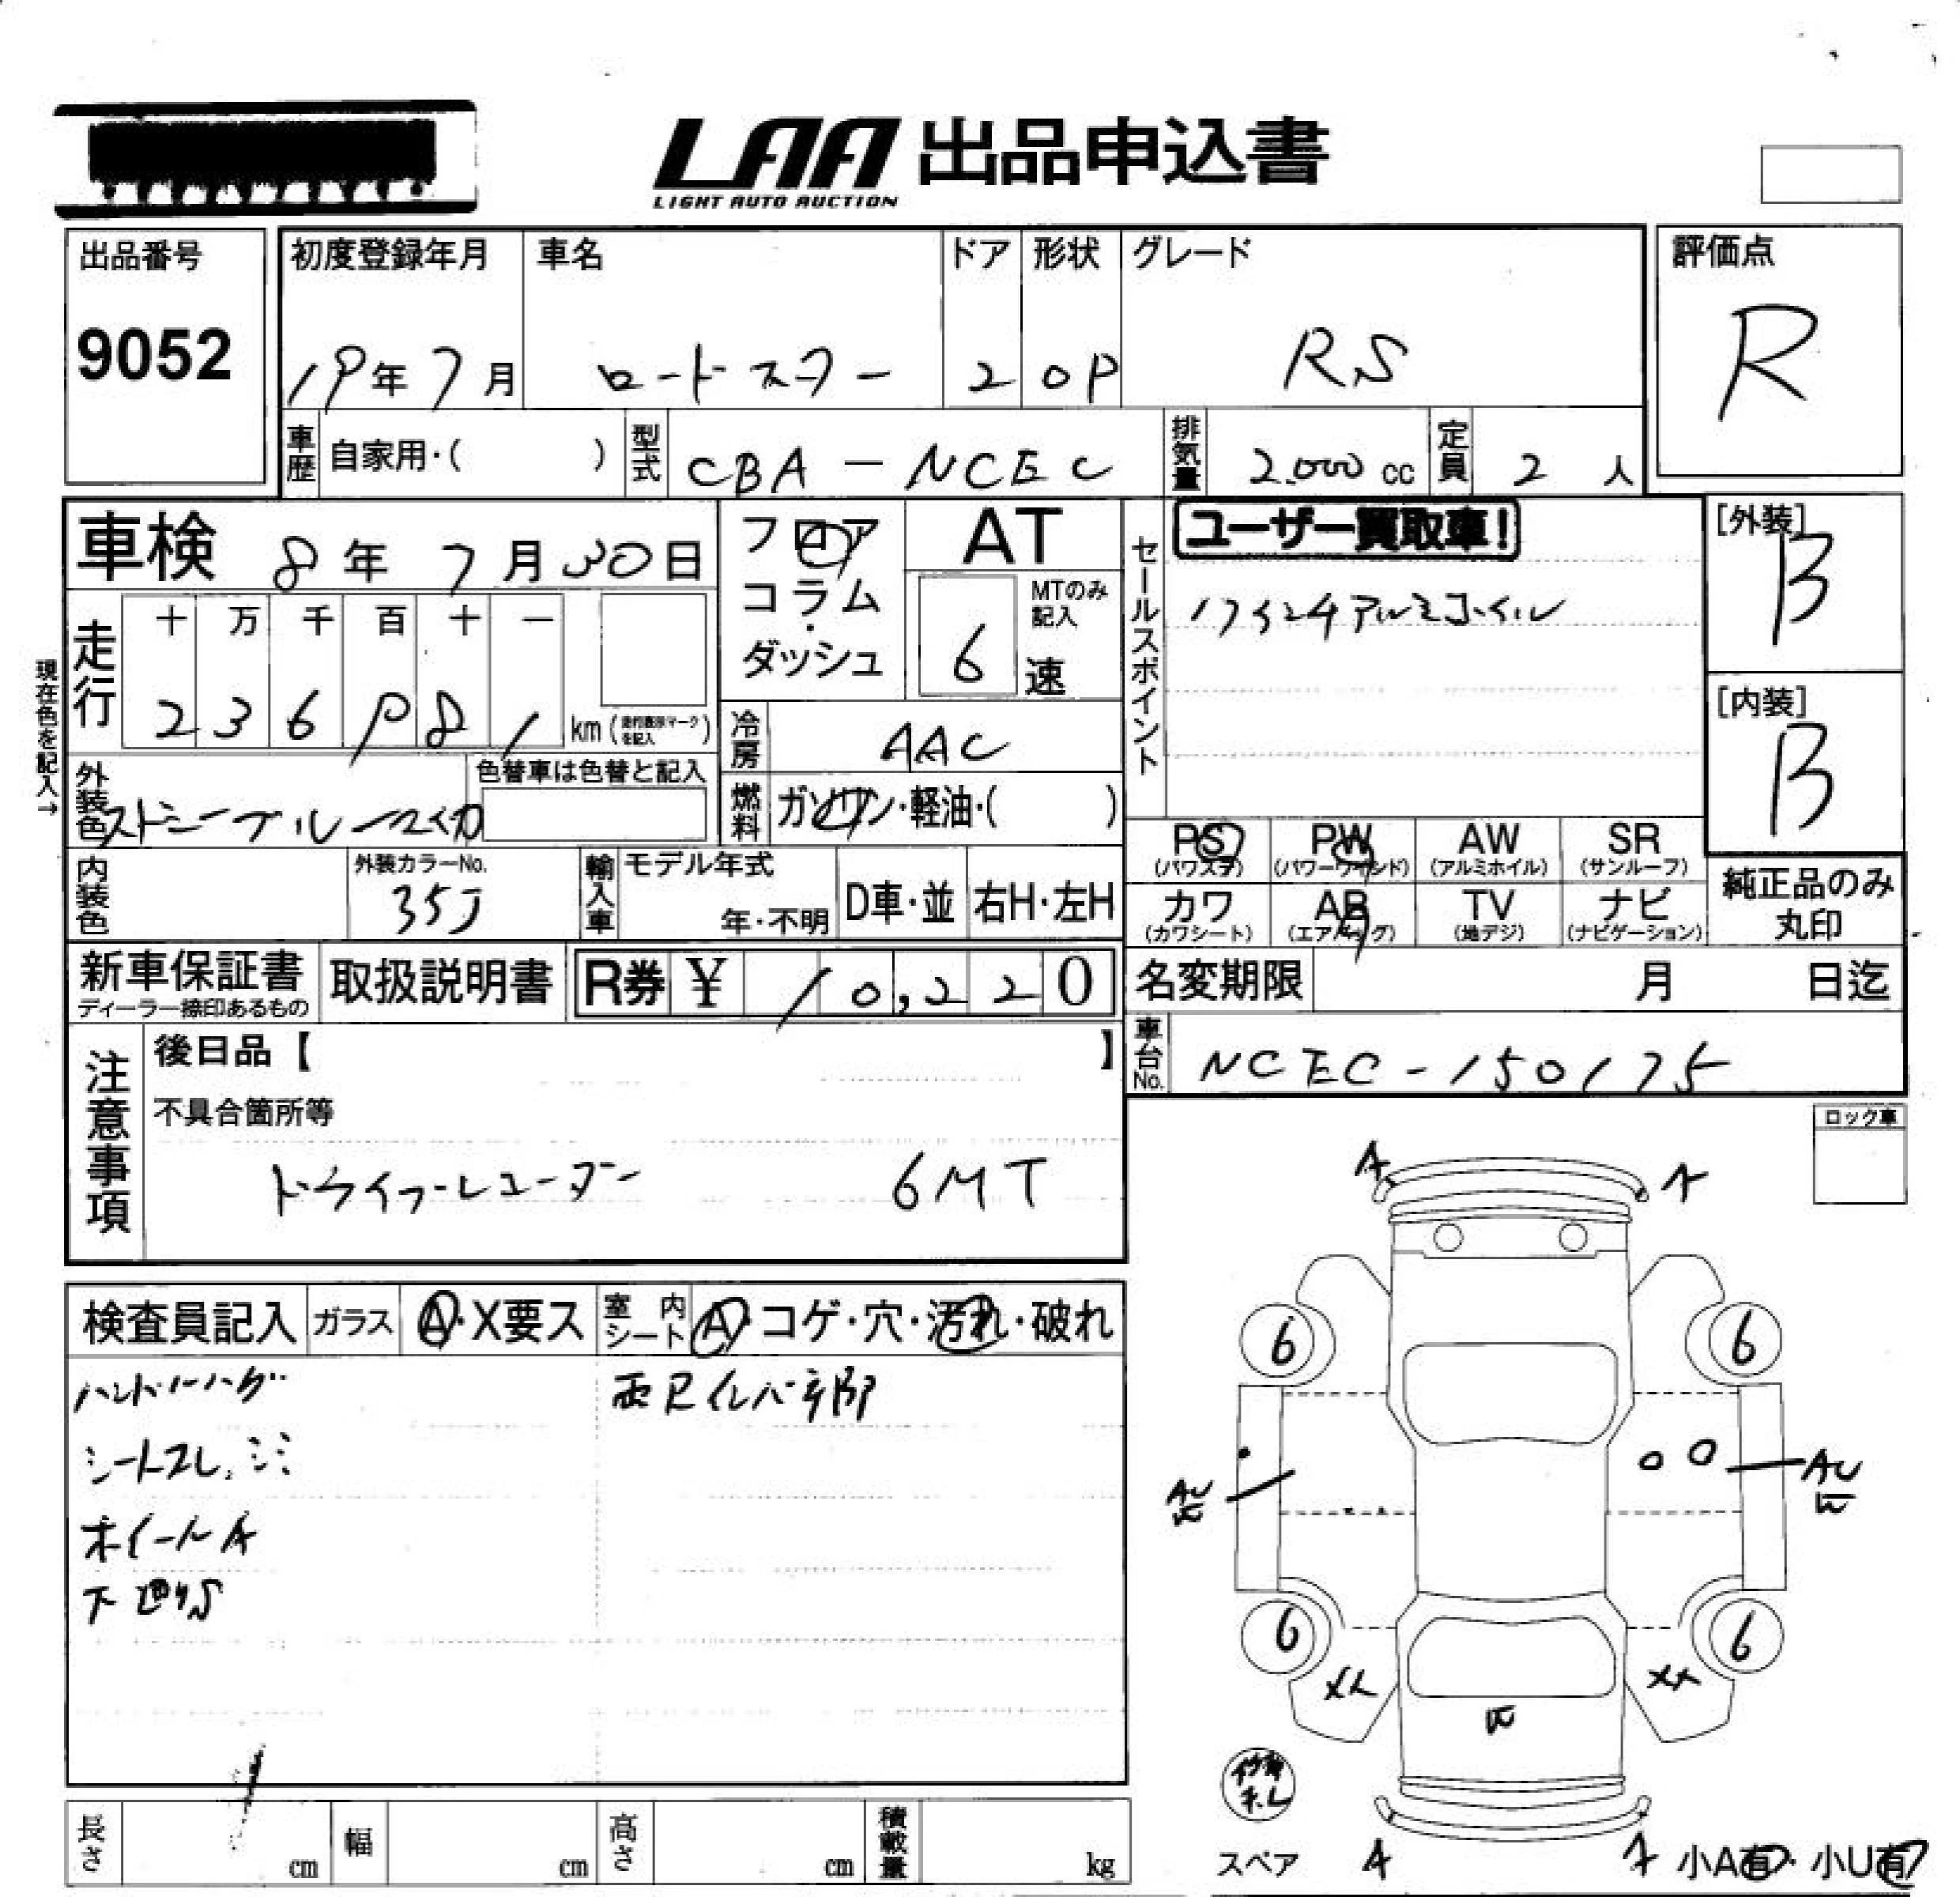 LAA 出品申込書
LIGHT AUTO AUCTION
出品番号
9052
初度登録年月
19年7月
車名
ロードスター
ドア
2
形状
OP
グレード
RS
評価点
R
車歴 自家用・( )
型式 CBA-NCEC
排気量 2.000 cc
定員 2 人
車検 8年7月30日
フロア
コラム・
ダッシュ
AT
MTのみ記入
6 速
セールスポイント
ユーザー買取車!
17インチアルミホイル
[外装]
B
[内装]
B
現在色を記入→
走行
十 万 千 百 十 一
2 3 6 9 8 1 km (走行表示マークを記入)
冷房 AAC
外装色
色替車は色替と記入
燃料 ガソリン・軽油・( )
PS (パワステ)
PW (パワーウインド)
AW (アルミホイル)
SR (サンルーフ)
カワ (カワシート)
AB (エアバッグ)
TV (地デジ)
ナビ (ナビゲーション)
純正品のみ
丸印
内装色
外装カラーNo.
35J
輸入車
モデル年式
年・不明
D車・並
右H・左H
新車保証書
ディーラー捺印あるもの
取扱説明書
R券 ¥ 10,220
名変期限 月 日迄
車台No. NCEC-150175
注意事項
後日品【 】
不具合箇所等
ドライブレコーダー 6MT
ロック車
検査員記入
ガラス A・X要ス
室内シート A・コゲ・穴・汚れ・破れ
シートスレ、シミ
ホイールA
A
A
6
6
AU
W
AU
W
6
6
W
スペア
A
A
小A有・小U有
長さ cm
幅 cm
高さ cm
積載量 kg